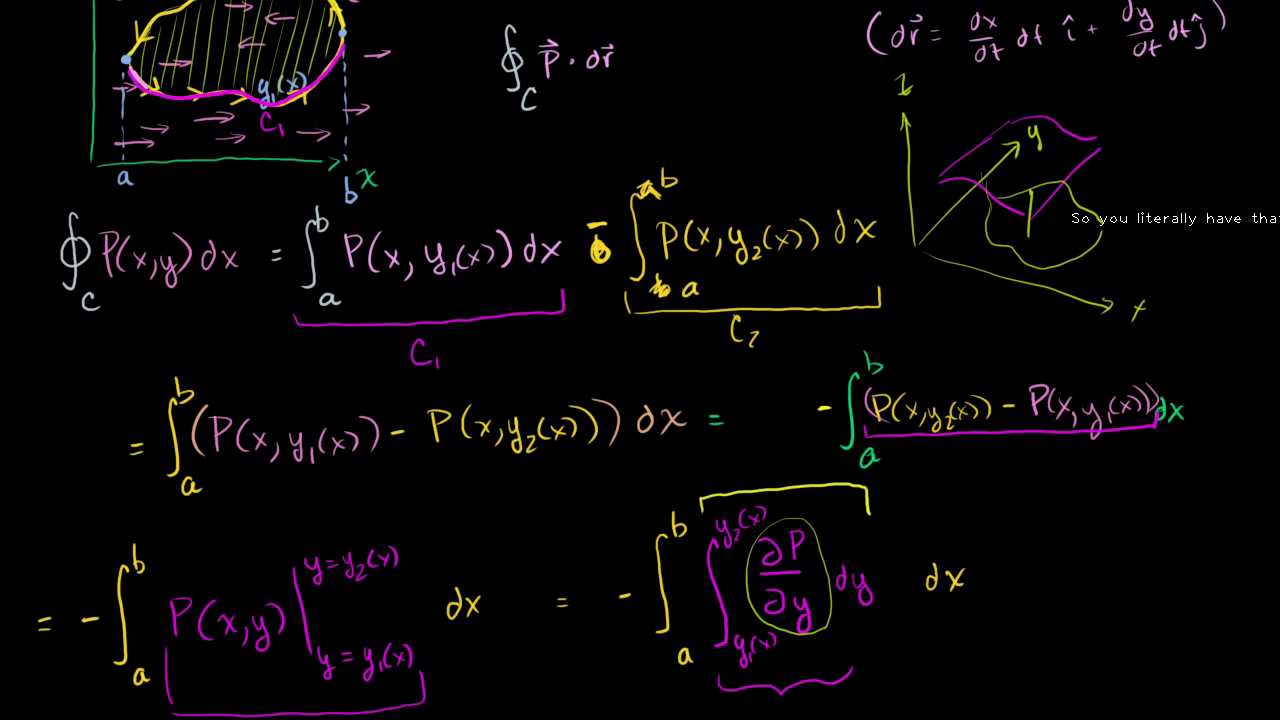 (d\vec{r} = \frac{dx}{dt} dt \hat{i} + \frac{dy}{dt} dt \hat{j})
\oint_C \vec{P} \cdot d\vec{r}
y_1(x)
C_1
a
b
x
z
y
x
So you literally have tha
\oint_C P(x,y) dx = \int_a^b P(x, y_1(x)) dx - \int_a^b P(x, y_2(x)) dx
C_1
C_2
= \int_a^b (P(x, y_1(x)) - P(x, y_2(x))) dx = - \int_a^b (P(x, y_2(x)) - P(x, y_1(x))) dx
= - \int_a^b P(x,y) |_{y = y_1(x)}^{y = y_2(x)} dx = - \int_a^b \int_{y_1(x)}^{y_2(x)} \frac{\partial P}{\partial y} dy dx